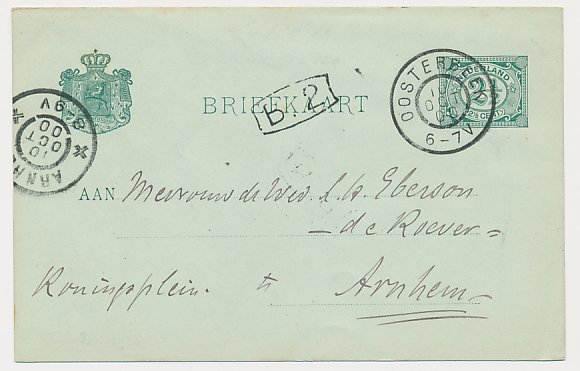 BRIEFKAART
B. 2
OOSTERBEEK
10 OCT 00
6-7V
NEDERLAND
2½ CENT
ARNHEM
10 OCT 00
8-9V
AAN Mevrouw de Wed. L. H. Eberson
- de Roever =
Koningsplein. te Arnhem